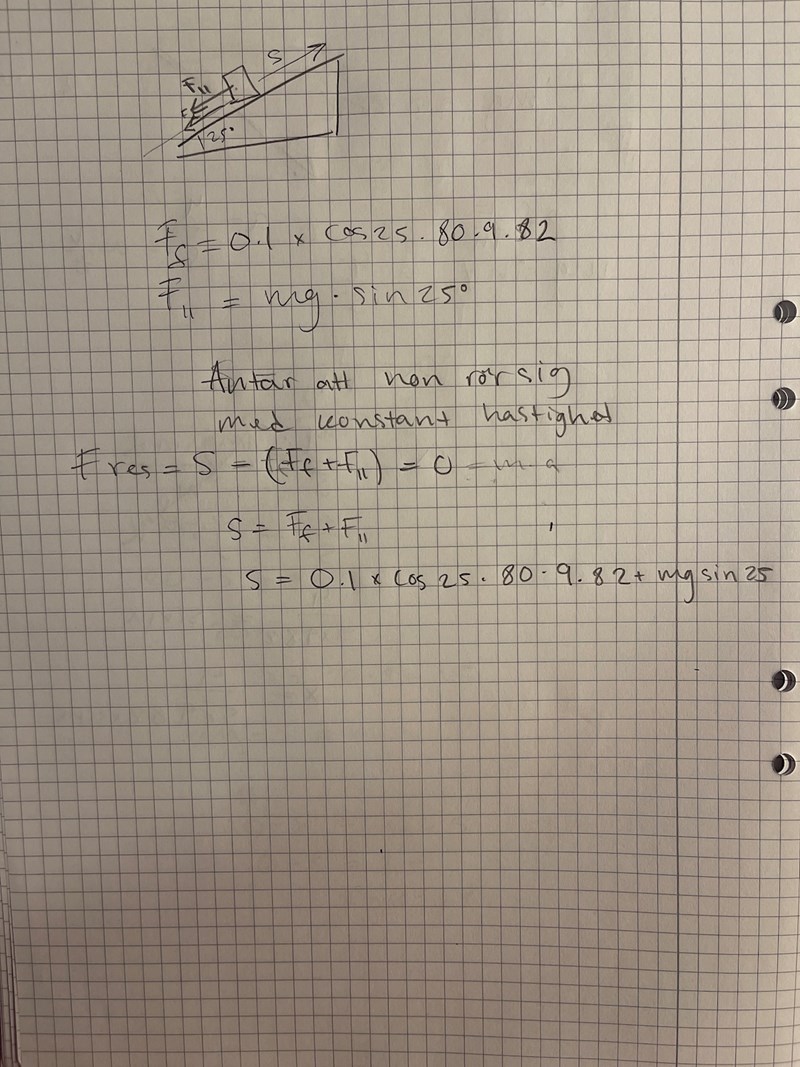 S
F₁₁
25°
F_f = 0.1 × cos 25 · 80 · 9.82
F₁₁ = mg · sin 25°
Antar att hon rör sig
med konstant hastighet
F res = S - (F_f + F₁₁) = 0 = m · a
S = F_f + F₁₁
S = 0.1 × cos 25 · 80 · 9.82 + mg sin 25